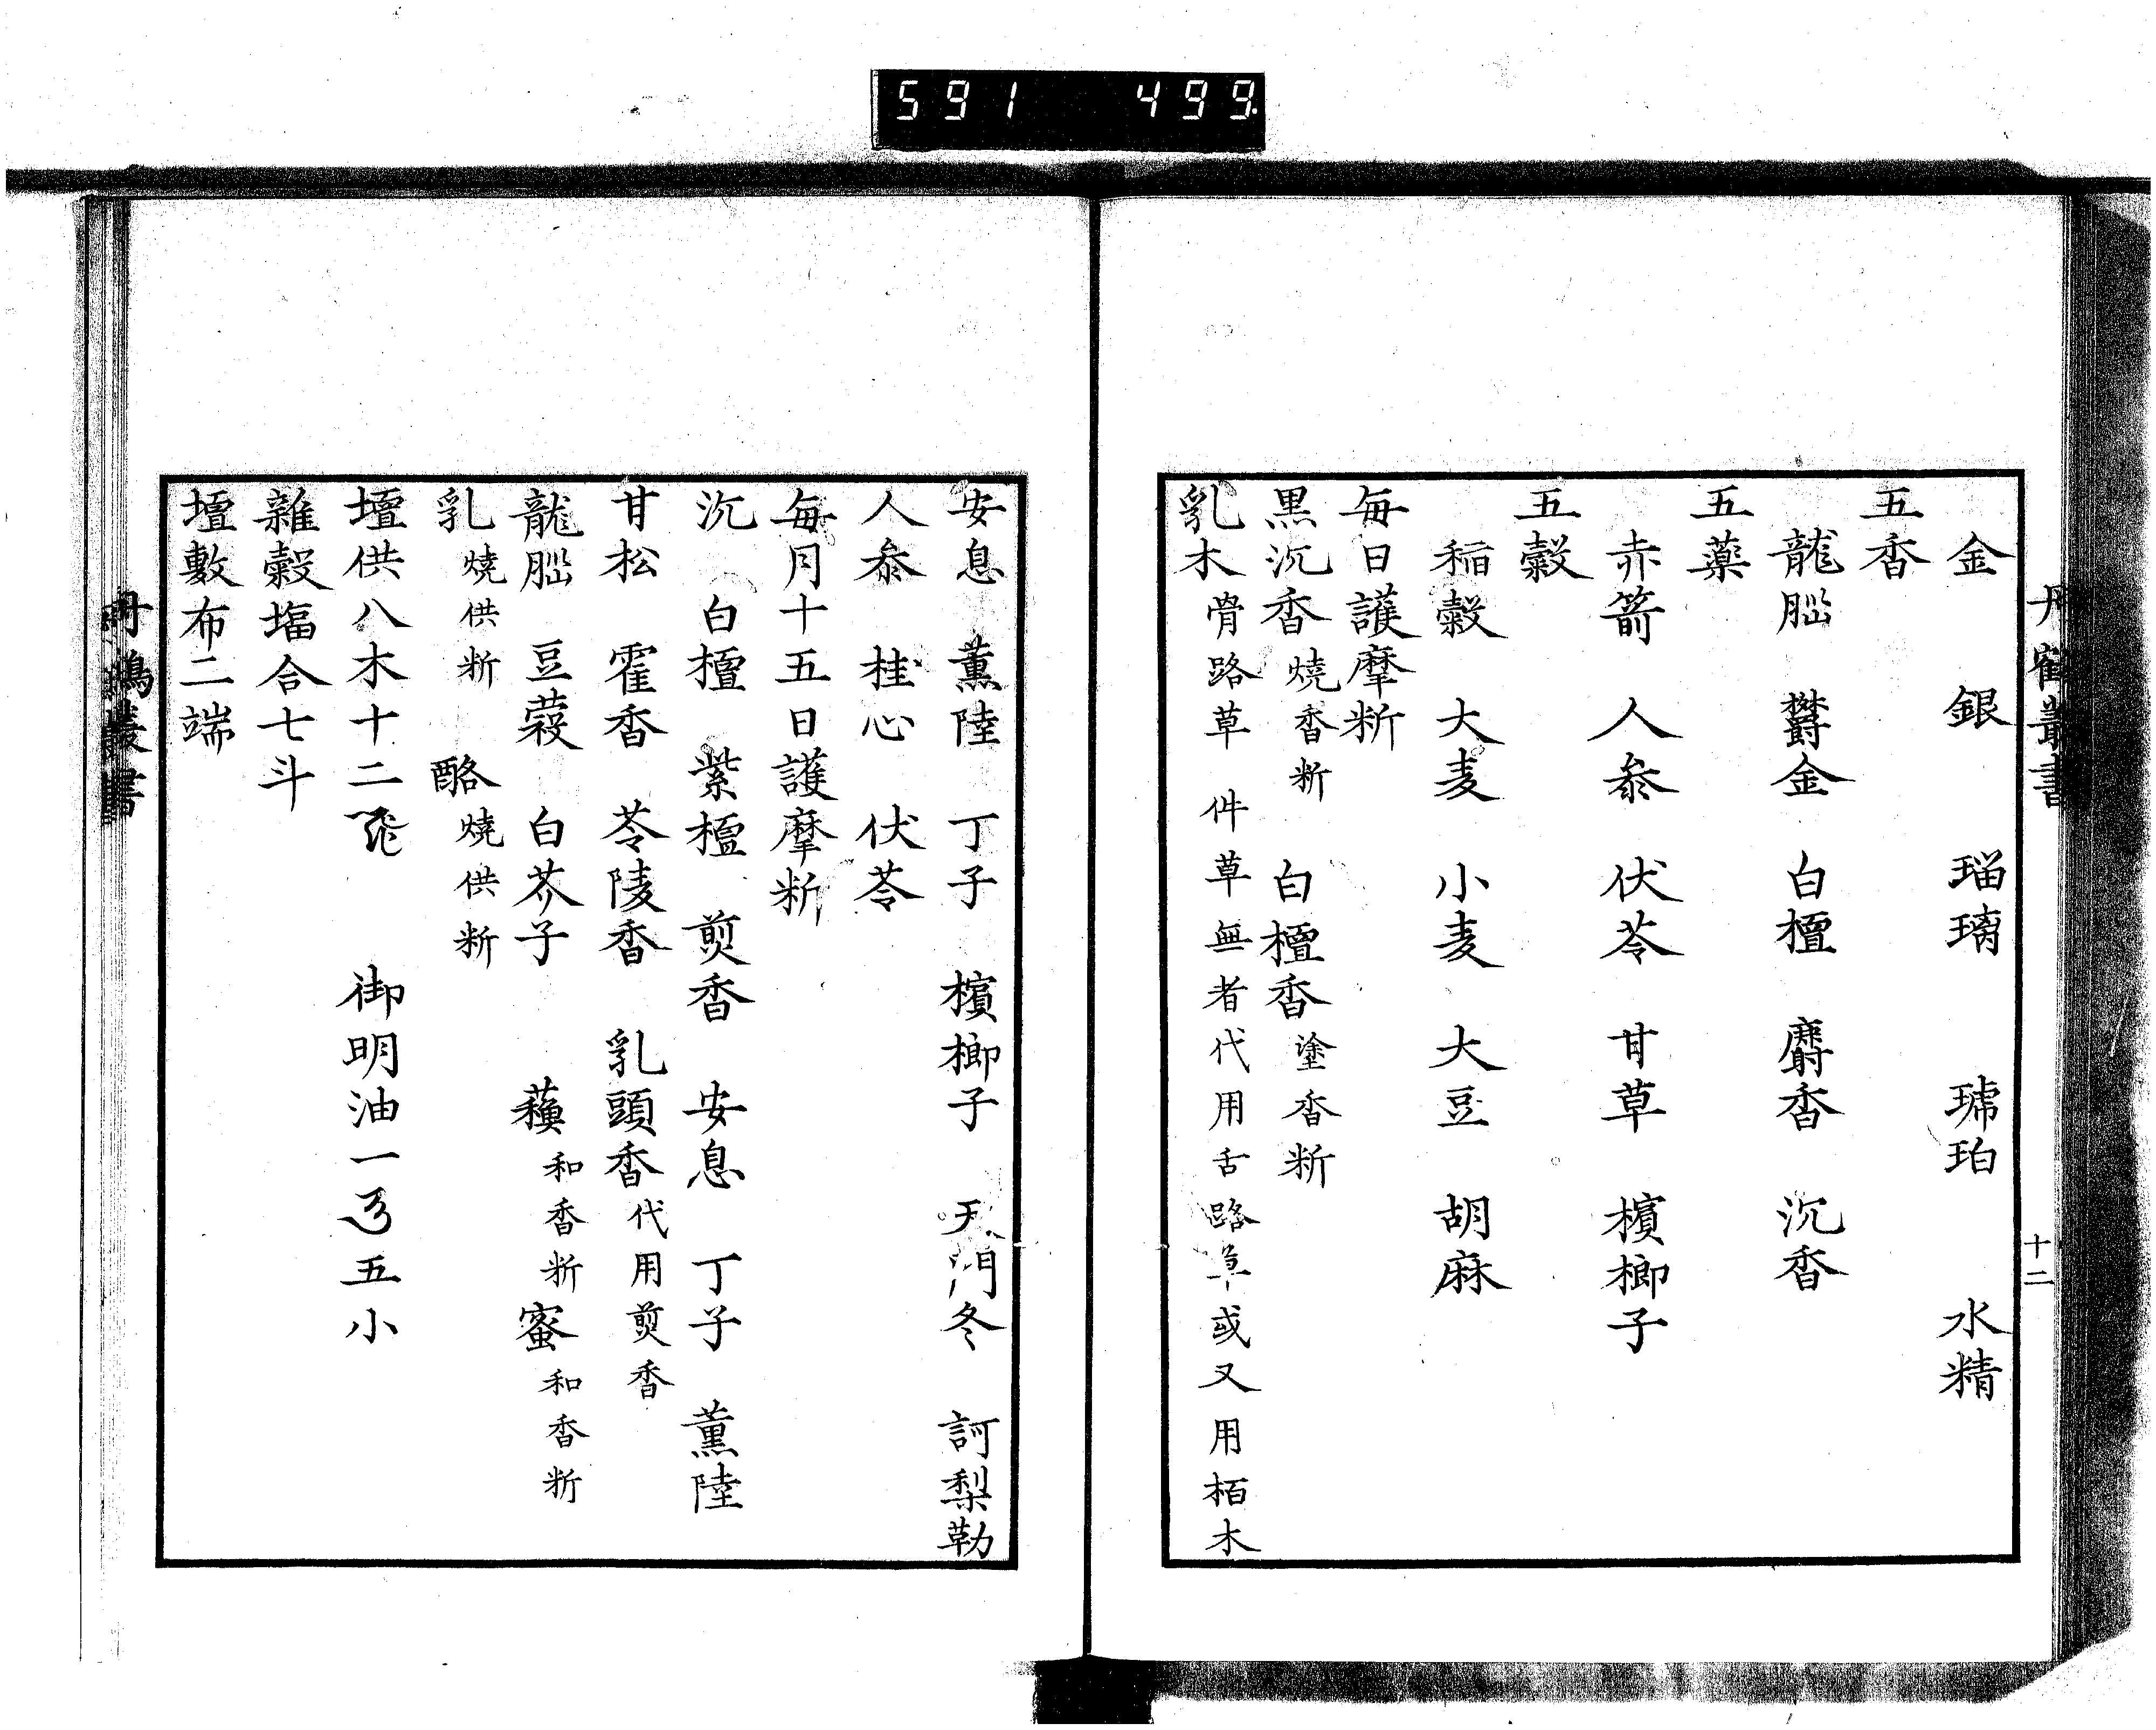 591 499
丹鶴叢書
十二
金 銀 瑠璃 琥珀 水精
五香
龍脳 欝金 白檀 麝香 沉香
五薬
赤箭 人参 伏苓 甘草 檳榔子
五糓
稲糓 大麦 小麦 大豆 胡麻
毎日護摩䉼
黒沉香燒香䉼 白檀香塗香䉼
乳木骨路草 件草無者代用舌路草或又用栢木
安息 薫陸 丁子 檳榔子 天門冬 訶梨勒
人参 桂心 伏苓
毎月十五日護摩䉼
沉 白檀 紫檀 煎香 安息 丁子 薫陸
甘松 霍香 苓陵香 乳頭香代用煎香
龍脳 豆蔲 白芥子 蘓和香䉼 蜜和香䉼
乳燒供䉼 酪燒供䉼
壇供八木十二 御明油一 五小
雜糓塭合七斗
壇敷布二端
丹鶴叢書